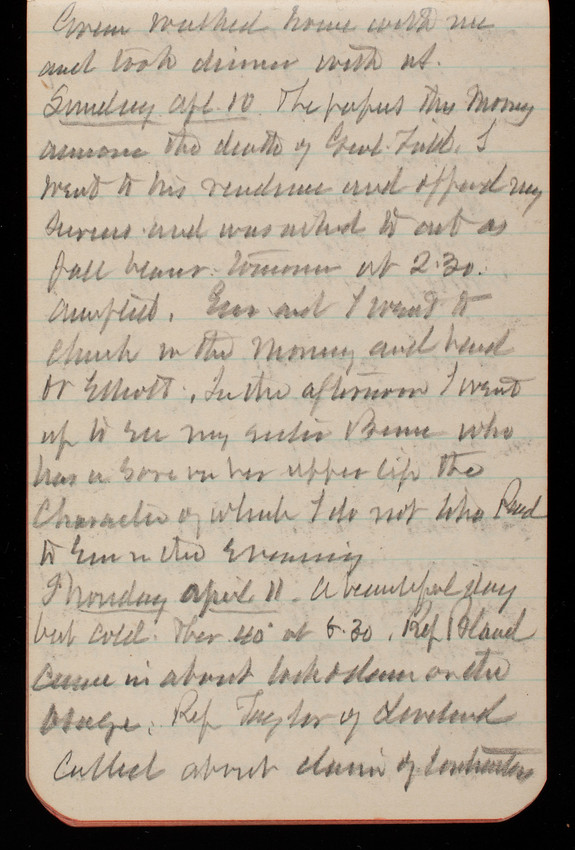 Green walked home with me
and took dinner with us.
Sunday Apl. 10. The papers this morning
announce the death of Genl. I
went to his residence and offered my
services and was asked to act as
pall bearer tomorrow at 2.30.
accepted. Em and I went to
church in the morning and heard
Dr Elliott. In the afternoon I went
up to see my sister who
has a sore on her upper lip the
character of which I do not Read
to Em in the evening
Monday April 11. A beautiful day
but cold. Ther 40° at 6.30. Rep Bland
came in about lock & dam on the
Osage. Rep Taylor of Cleveland
called about claim of Contractors